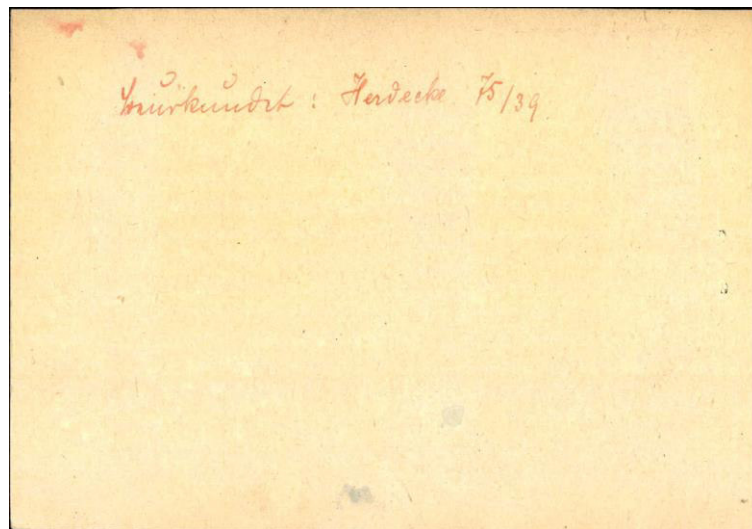 beurkundet: Herdecke 75/39